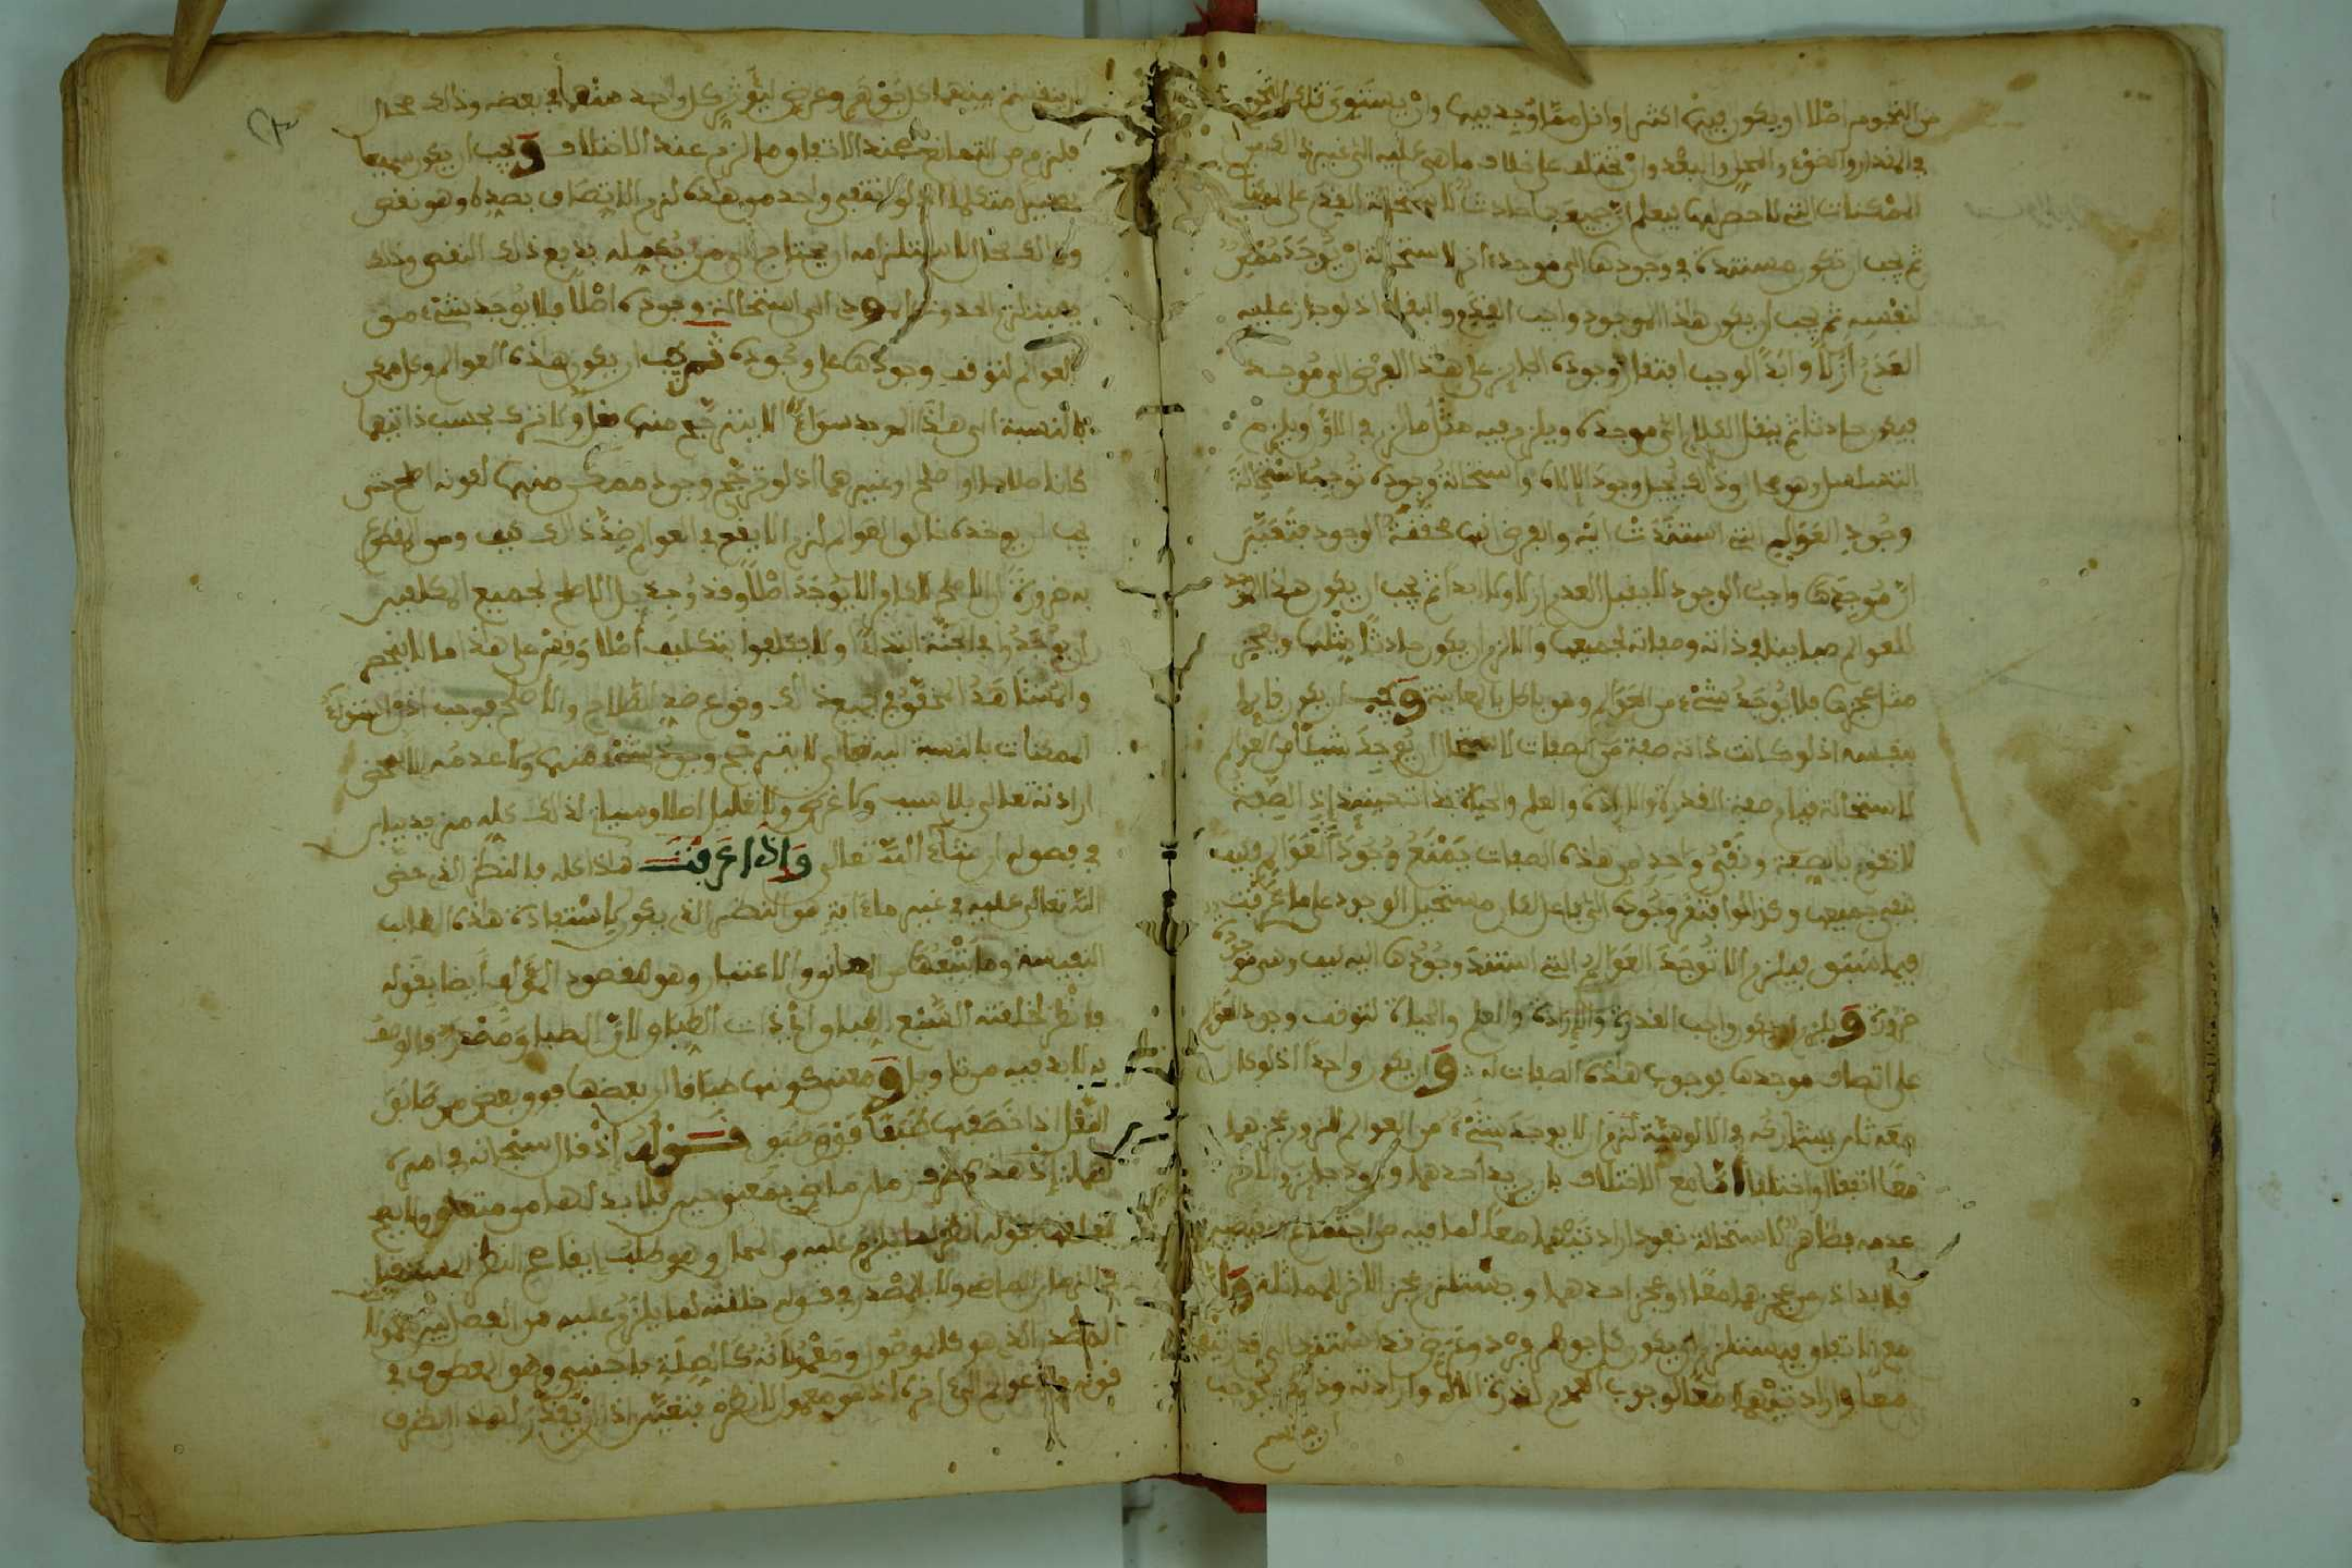 من النجوم اصلا او يكون فيها اكثر او اقل مما وجد فيها وان يستوى تلك النجوم
في المقدار والضوء والمحل والبعد وان تختلف على خلاف ما هي عليه الى غير ذلك من
الممكنات التي لا حصر لها فيعلم ان جميعها حادث لاستحالة القدم على
ثم يجب ان تكون مستندة في وجودها الى موجد اخر لاستحالة ان يوجد ممكن
لنفسه ثم يجب ان يكون هذا الموجود واجب القدم والبقاء اذ لو جاز عليه
العدم ازلا وابدا لوجب افتقار وجوده الجايز على هذا الفرض الى موجد
فيكون حادثا ثم ينقل الكلام الى موجده ويلزم فيه مثل ما لزم في الاول ويلزم
التسلسل وهو محال وذلك يحيل وجود الاله واستحالة وجوده توجب استحالة
وجود العوالم التي استندت اليه والفرض انها محققة الوجود فتعين
ان موجدها واجب الوجود لا يقبل العدم ازلا ولا ابدا ثم يجب ان يكون هذا الموجد
للعوالم مباينا في ذاته وصفاته لجميعها والا لزم ان يكون حادثا مثلها ويعجز
مثل عجزها فلا يوجد شيء من العوالم وهو باطل بالمعاينة ويجب ان يكون قايما
بنفسه اذ لو كانت ذاته صفة من الصفات لاستحال ان يوجد شيئا من العوالم
لاستحالة قيام صفة القدرة والارادة والعلم والحياة بذاته حينئذ اذ الصفة
لا تقوم بالصفة ونفي واحد من هذه الصفات يمنع وجود العوالم فكيف
بنفي جميعها وكذا لو افتقر وجوده الى فاعل لكان مستحيل الوجود على ما عرفت
فيما سبق فيلزم الا توجد العوالم التي استند وجودها اليه كيف وهي موجودة
ضرورة ويلزم ان يكون واجب القدرة والارادة والعلم والحياة لتوقف وجود العوالم
على اتصاف موجدها بوجوب هذه الصفات له وان يكون واحدا اذ لو كان
معه ثان يشاركه في الالوهية لزم ان لا يوجد شيء من العوالم للزوم عجزهما
معا اتفقا او اختلفا اما مع الاختلاف بان يريد احدهما وجود جايز والاخر
عدمه فظاهر لاستحالة نفوذ ارادتيهما معا لما فيه من اجتماع النقيضين
فلا بد اذ من عجزهما معا او عجز احدهما ويستلزم عجز الاخر للمماثلة واما
مع الاتفاق فيستلزم ان يكون كل جوهر فرد وعرض قد استند الى قدرتيهما
معا وارادتيهما معا لوجوب العموم لقدرة الاله وارادته وذلك يوجب
ان ينقسم
ان ينقسم منهما كل جوهر وعرض ليوثر كل واحد منهما في بعضه وذلك محال
فلزم من التمانع عند الاتفاق ما لزم عند الاختلاف ويجب ان يكون سميعا
بصيرا متكلما اذ لو انتفى واحد من هذه لزم الاتصاف بضده وهو نقص
وذلك محال لاستلزامه ان يحتاج الى من يكمله بدفع ذلك النقص وذلك
يستلزم الحدوث المودي الى استحالة وجوده اصلا فلا يوجد شيء من
العوالم لتوقف وجودها على وجوده ثم يجب ان يكون هذه العوالم وكل ممكن
بالنسبة الى هذا الموجد سواء لا يترجح منها فعل ولا ترك بحسب ذاتيهما
كانا صلاحا او اصلح او غيرهما اذ لو ترجح وجود ممكن منها لكونه اصلح حتى
يجب ان يوجده خالق العوالم لزم الا يقع في العوالم ضد ذلك كيف ومن المقطوع
به ضرورة ان الاصلح للكافر الا يوجد اصلا وقد وجد بل الاصلح لجميع المكلفين
ان يوجدوا في الجنة ابتداء ولا يكلفوا بتكليف اصلا وقس على هذا ما لا ينحصر
والمشاهد المحقق في جميع ذلك وقوع ضد الصلاح والاصلح فوجب اذا استواء
الممكنات بالنسبة اليه تعالى لا يترجح وجود شيء منها ولا عدمه الا بمحض
ارادته تعالى بلا سبب ولا غرض ولا تعليل اصلا وسياتي لذلك كله مزيد بيان
في فصوله ان شاء الله تعالى واذا عرفت هذا كله فالنظر الذي حض
الله تعالى عليه في غير ما ءاية هو النظر الذي يكون لاستفادة هذه المطالب
النفيسة وما يتبعها من الحقائق والاعتبار وهو مقصود المولف ايضا بقوله
فانظر لخلقته السبع الطباق اي ذات الطباق لان الطباق مصدر فالوصف
به لا بد فيه من تاويل ومعنى كونها طباقا ان بعضها فوق بعض من طابق
النعل اذا خصفها طبقا فوق طبق قوله اذ قال سبحانه في امره
لهما اذ هذه ظرف زمان ماض بمعنى حين فلا بد لها من متعلق ولا يصح
تعلقها بقوله انظر لما يلزم عليه من المحال وهو طلب ايقاع النظر المستقبل
في الزمان الماضي ولا بالمصدر في قوله خلقته لما يلزم عليه من الفصل بين معمول
المصدر الذي هو كالموصول ومعمولاته كالصلة باجنبي وهو المعطوف في
قوله والعوالم الى اخره اذ هو معمول لانظر فيتعين اذا ان يقدر لهذا الظرف